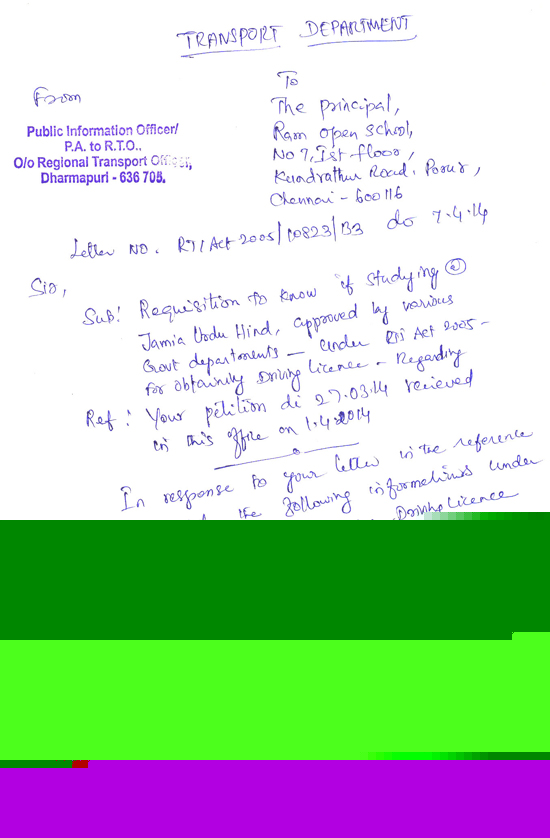 TRANSPORT DEPARTMENT
From
Public Information Officer/
P.A. to R.T.O.,
O/o Regional Transport Officer,
Dharmapuri - 636 705.
To
The principal,
Ram open school,
No 7, Ist floor,
Kundrathur Road, Porur,
Chennai - 600116
Letter NO. RTI Act 2005/10823/B3 do 7.4.14
Sir,
Sub: Requisition to know if studying @
Jamia Urdu Hind, approved by various
Govt departments — under RTI Act 2005 -
for obtaining Driving Licence - Regarding
Ref: Your petition dt 27.03.14 recieved
in this office on 1.4.2014
In response to your letter in the reference
the following informations under
Driving Licence